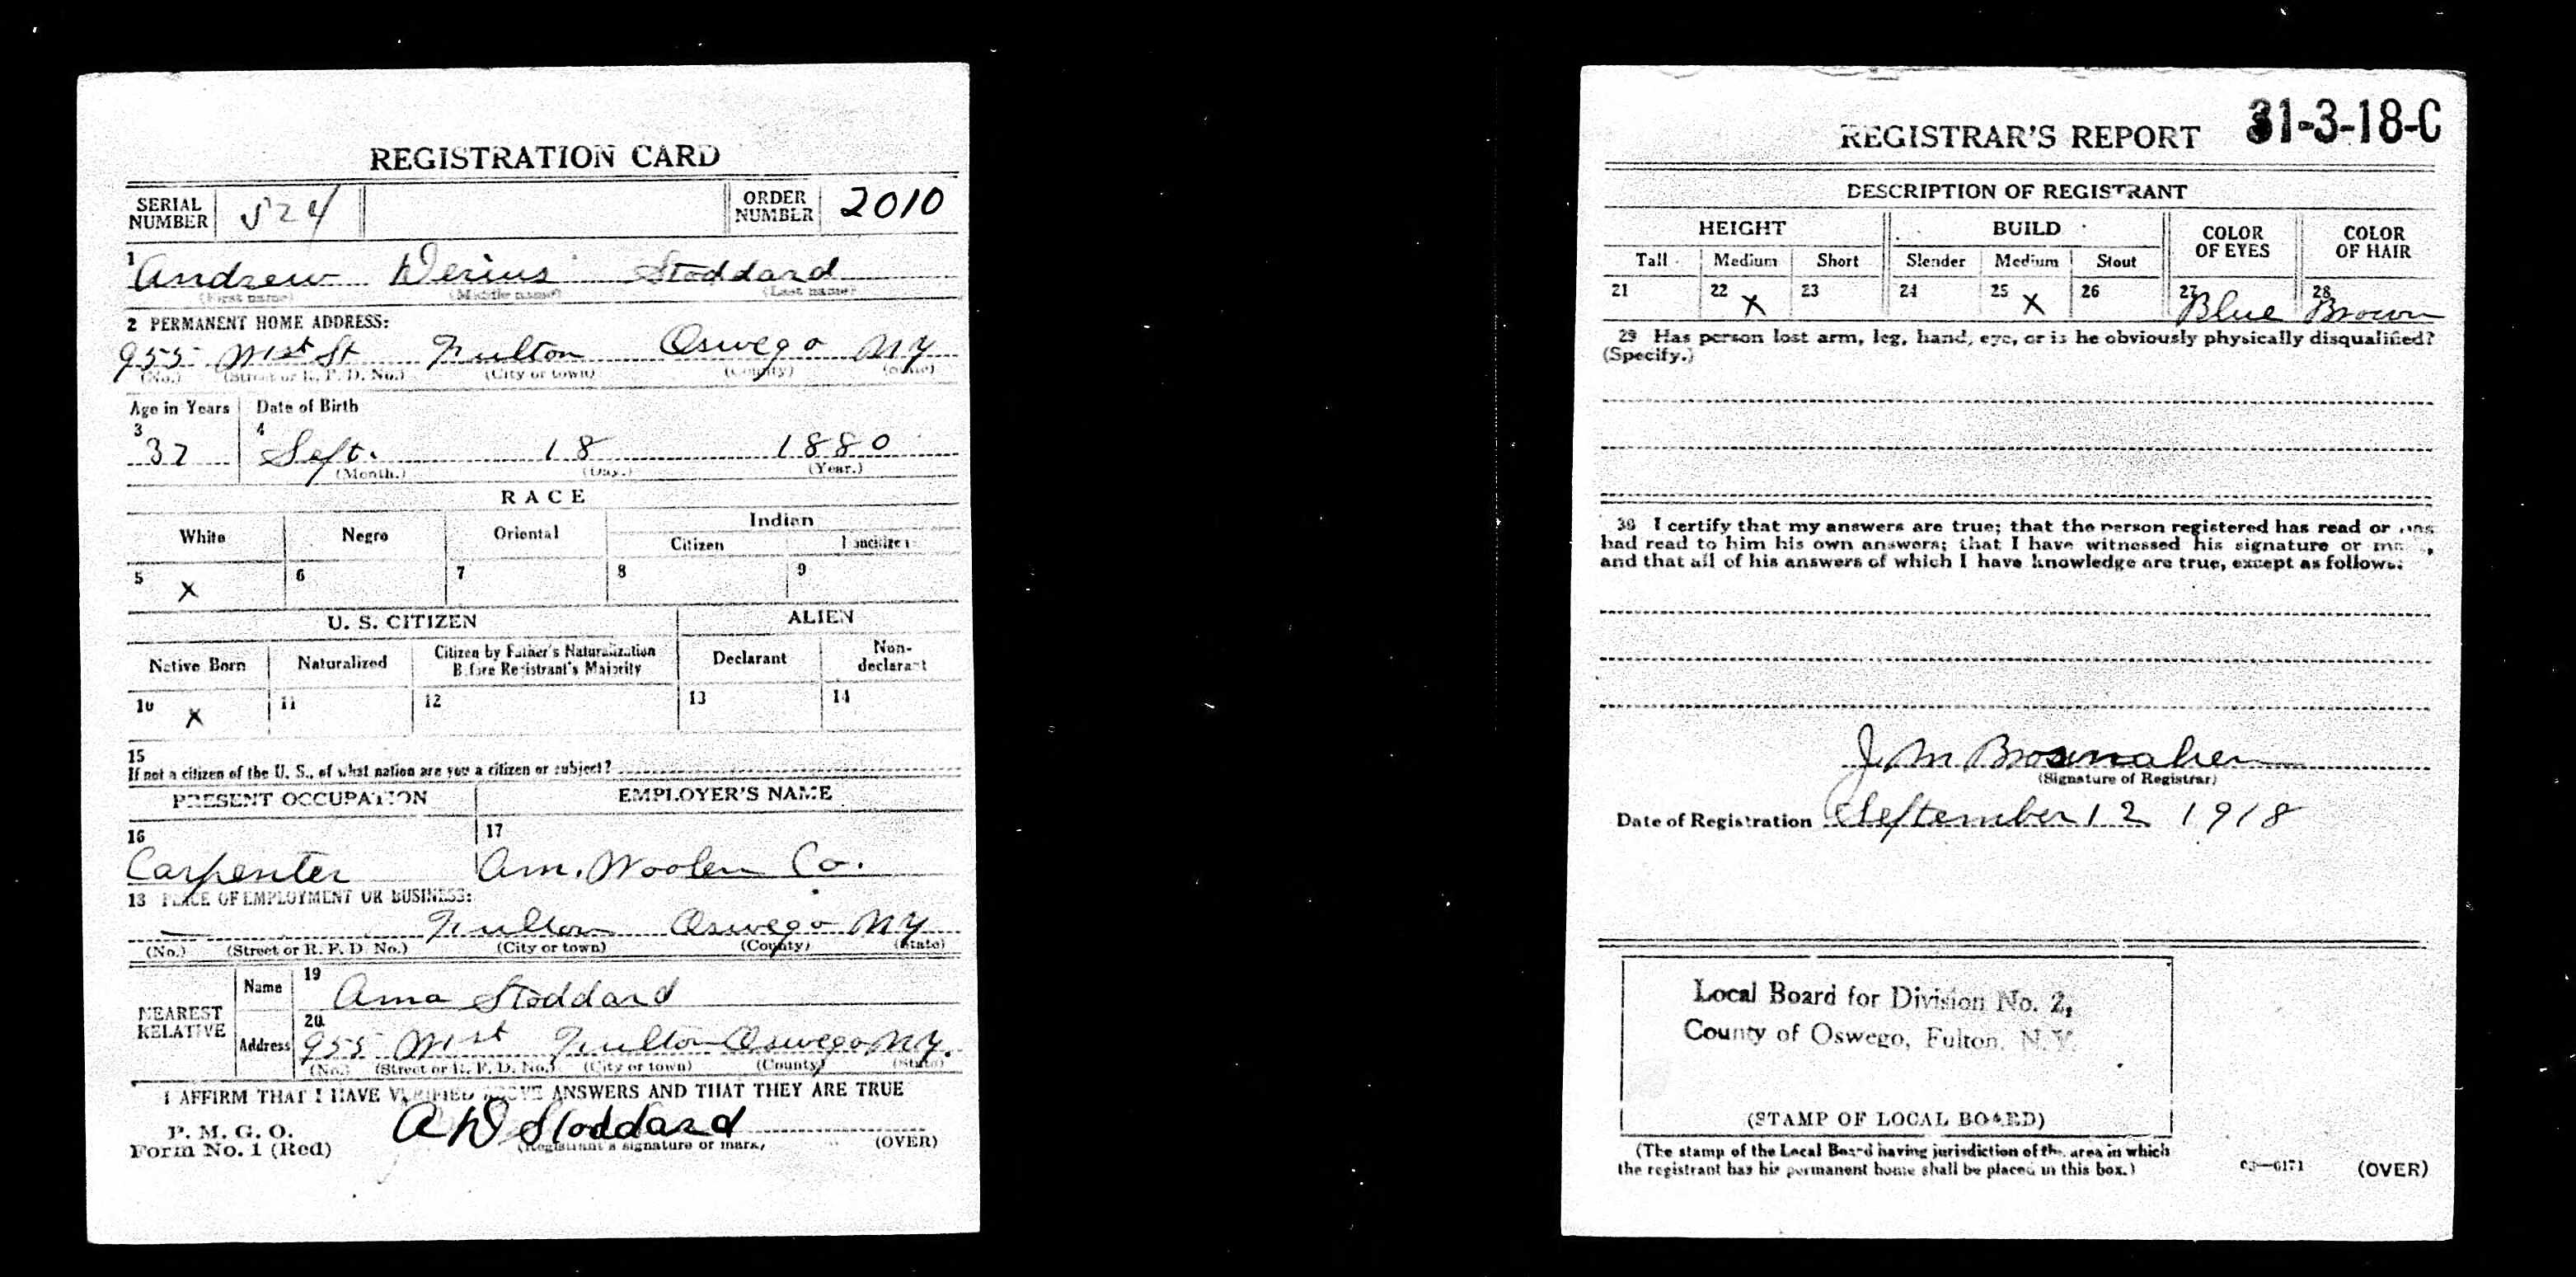 REGISTRATION CARD
SERIAL NUMBER 524 ORDER NUMBER 2010
1 Andrew Derius Stoddard
(First name) (Middle name) (Last name)
2 PERMANENT HOME ADDRESS:
955 W 1st St Fulton Oswego NY
(No.) (Street or R. F. D. No.) (City or town) (County) (State)
Age in Years Date of Birth
3 37 4 Sept. 18 1880
(Month.) (Day.) (Year.)
RACE
White Negro Oriental Indian
Citizen Noncitizen
5 X 6 7 8 9
U. S. CITIZEN ALIEN
Native Born Naturalized Citizen by Father's Naturalization Before Registrant's Majority Declarant Non-declarant
10 X 11 12 13 14
15
If not a citizen of the U. S., of what nation are you a citizen or subject?
PRESENT OCCUPATION EMPLOYER'S NAME
16 17
Carpenter Am. Woolen Co.
18 PLACE OF EMPLOYMENT OR BUSINESS:
— Fulton Oswego NY
(No.) (Street or R. F. D. No.) (City or town) (County) (State)
NEAREST RELATIVE Name 19 Anna Stoddard
Address 20 955 W 1st Fulton Oswego NY.
(No.) (Street or R. F. D. No.) (City or town) (County) (State)
I AFFIRM THAT I HAVE VERIFIED ABOVE ANSWERS AND THAT THEY ARE TRUE
P. M. G. O.
Form No. 1 (Red) A D Stoddard
(Registrant's signature or mark) (OVER)
REGISTRAR'S REPORT 31-3-18-C
DESCRIPTION OF REGISTRANT
HEIGHT BUILD COLOR OF EYES COLOR OF HAIR
Tall Medium Short Slender Medium Stout
21 22 X 23 24 25 X 26 27 Blue 28 Brown
29 Has person lost arm, leg, hand, eye, or is he obviously physically disqualified?
(Specify.)
30 I certify that my answers are true; that the person registered has read or has
had read to him his own answers; that I have witnessed his signature or mark,
and that all of his answers of which I have knowledge are true, except as follows:
J. M. Brosmaher
(Signature of Registrar)
Date of Registration September 12 1918
Local Board for Division No. 2,
County of Oswego, Fulton, N.Y.
(STAMP OF LOCAL BOARD)
(The stamp of the Local Board having jurisdiction of the area in which
the registrant has his permanent home shall be placed in this box.)
03—6171 (OVER)